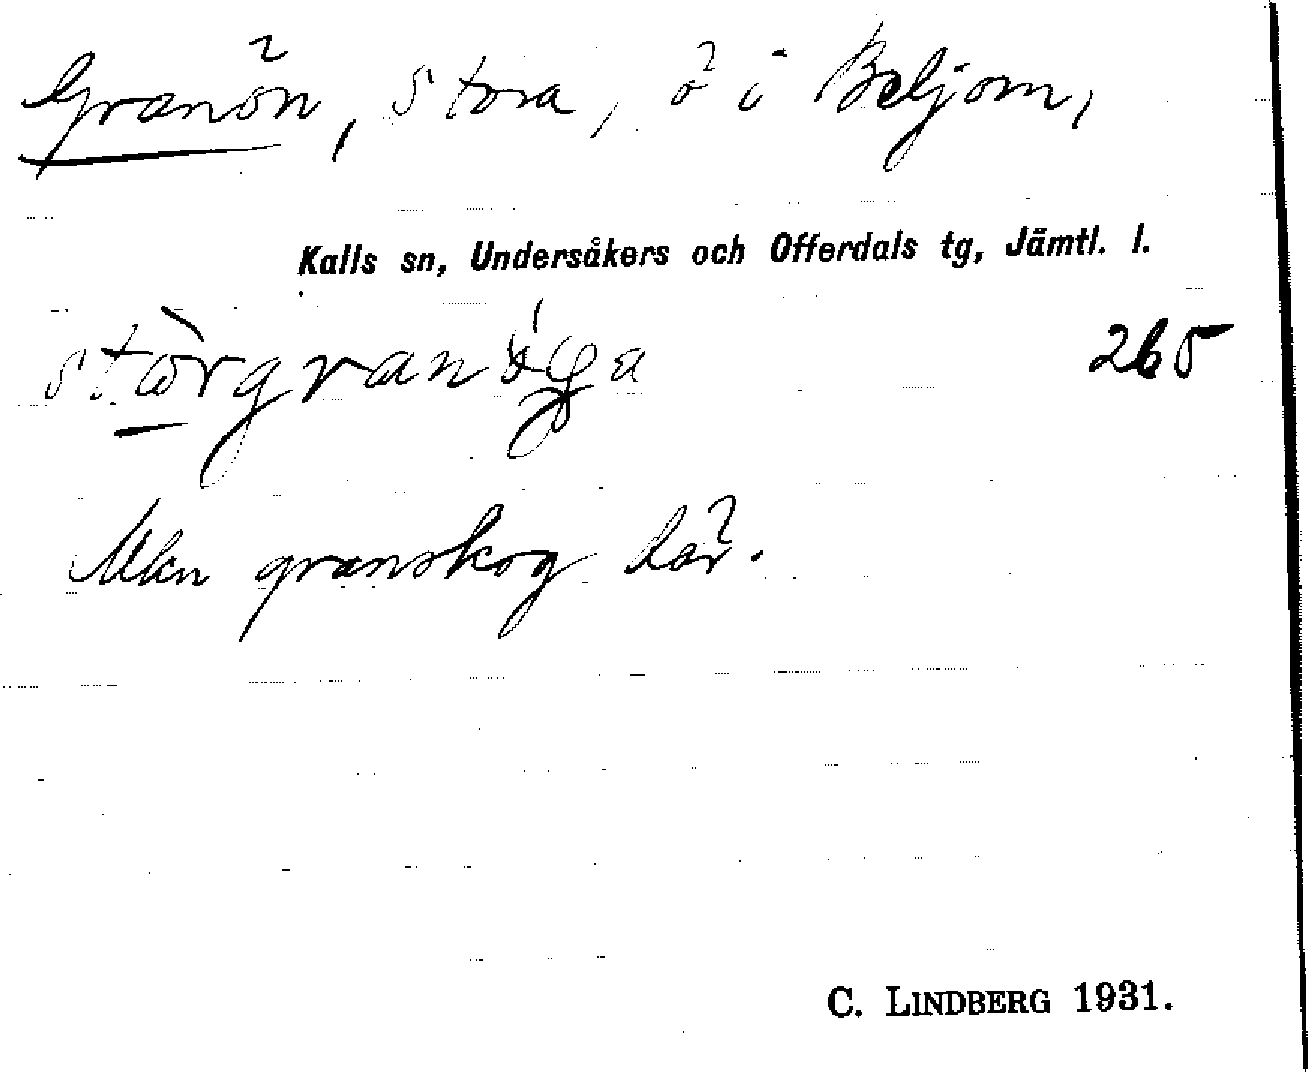 Granön, Stora, ö i Beljom,
Kalls sn, Undersåkers och Offerdals tg, Jämtl. l.
265
Mkn granskog där.
C. LINDBERG 1931.